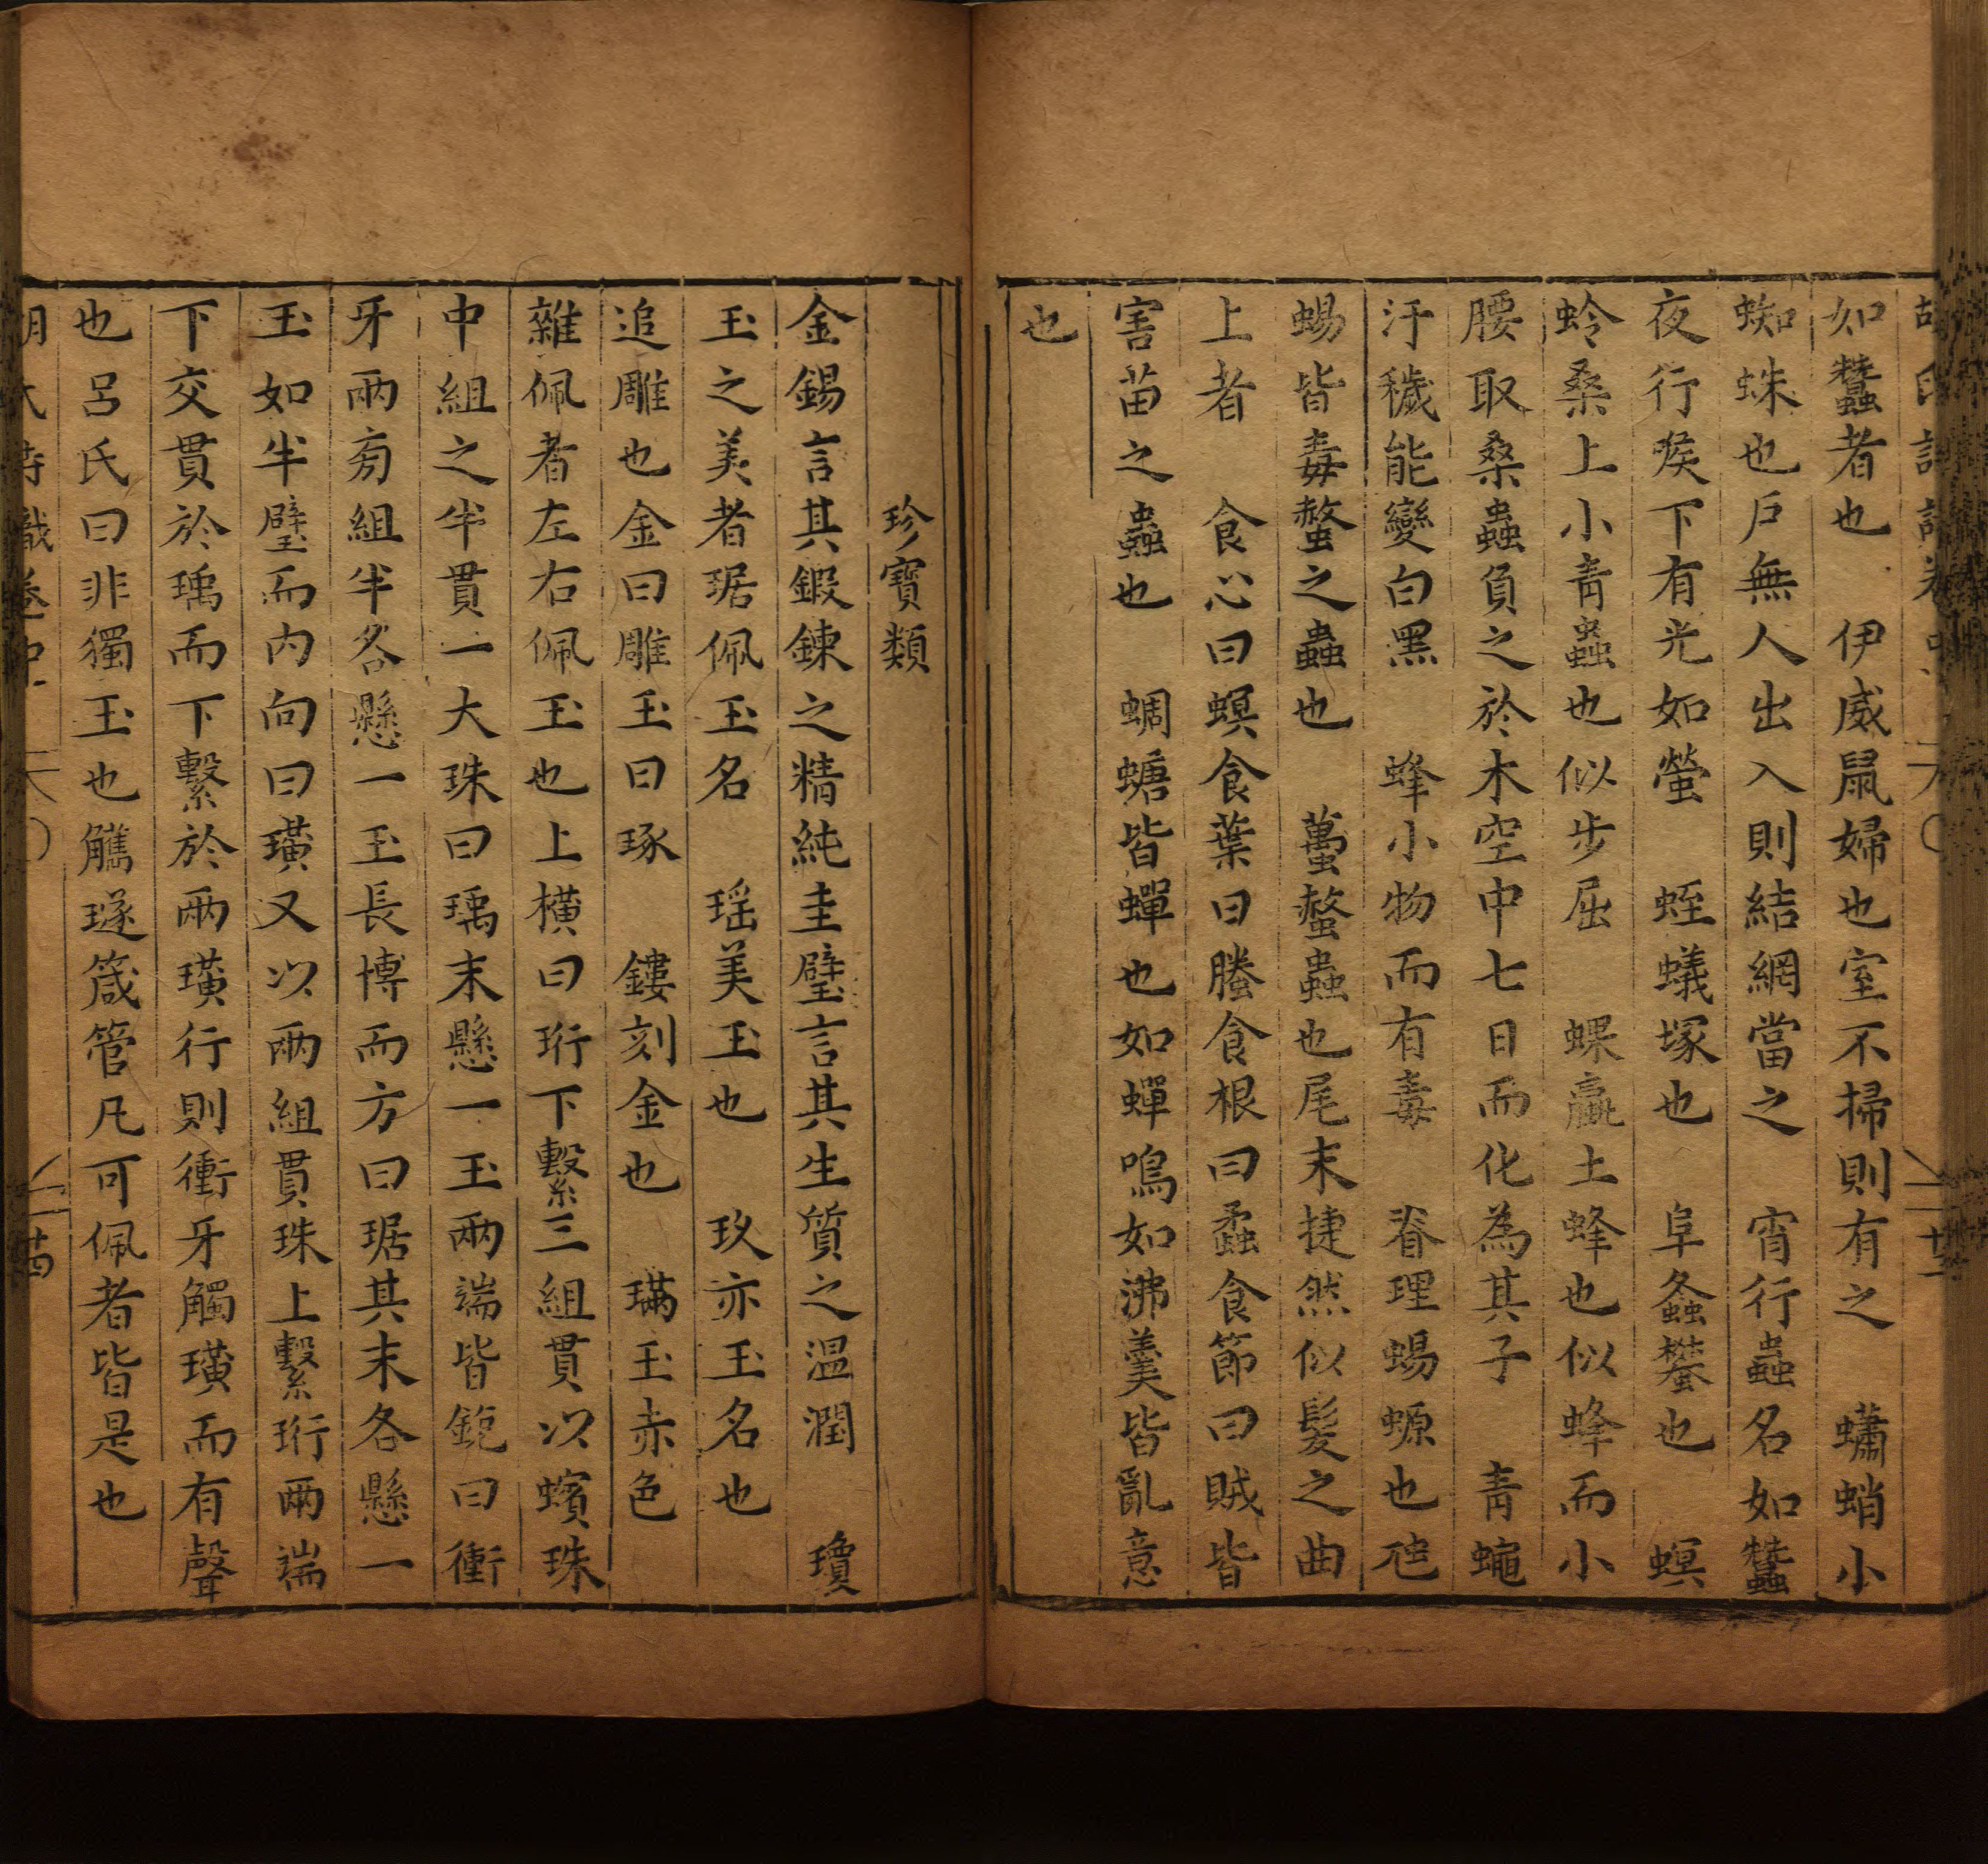 如蠶者也　伊威鼠婦也室不掃則有之　蠨蛸小
蜘蛛也戶無人出入則結網當之　宵行蟲名如蠶
夜行喉下有光如螢　蛭蟻塚也　阜螽蠜也　螟
蛉桑上小青蟲也似步屈　蜾蠃土蜂也似蜂而小
腰取桑蟲負之於木空中七日而化為其子　青蠅
汙穢能變白黑　蜂小物而有毒　脊理蜴螈也虺
蜴皆毒螫之蟲也　蠆螫蟲也尾末揵然似髮之曲
上者　食心曰螟食葉曰螣食根曰蟊食節曰賊皆
害苗之蟲也　蜩螗皆蟬也如蟬鳴如沸羹皆亂意
也
珍寶類
金錫言其鍜鍊之精純圭璧言其生質之温潤　瓊
玉之美者琚佩玉名　瑶美玉也　玖亦玉名也
追雕也金曰雕玉曰琢　鏤刻金也　璊玉赤色
雜佩者左右佩玉也上橫曰珩下繫三組貫以蠙珠
中組之半貫一大珠曰瑀末懸一玉兩端皆鋭曰衝
牙兩旁組半各懸一玉長博而方曰琚其末各懸一
玉如半璧而内向曰璜又以兩組貫珠上繫珩兩端
下交貫於瑀而下繫於兩璜行則衝牙觸璜而有聲
也呂氏曰非獨玉也觿璲箴管凡可佩者皆是也